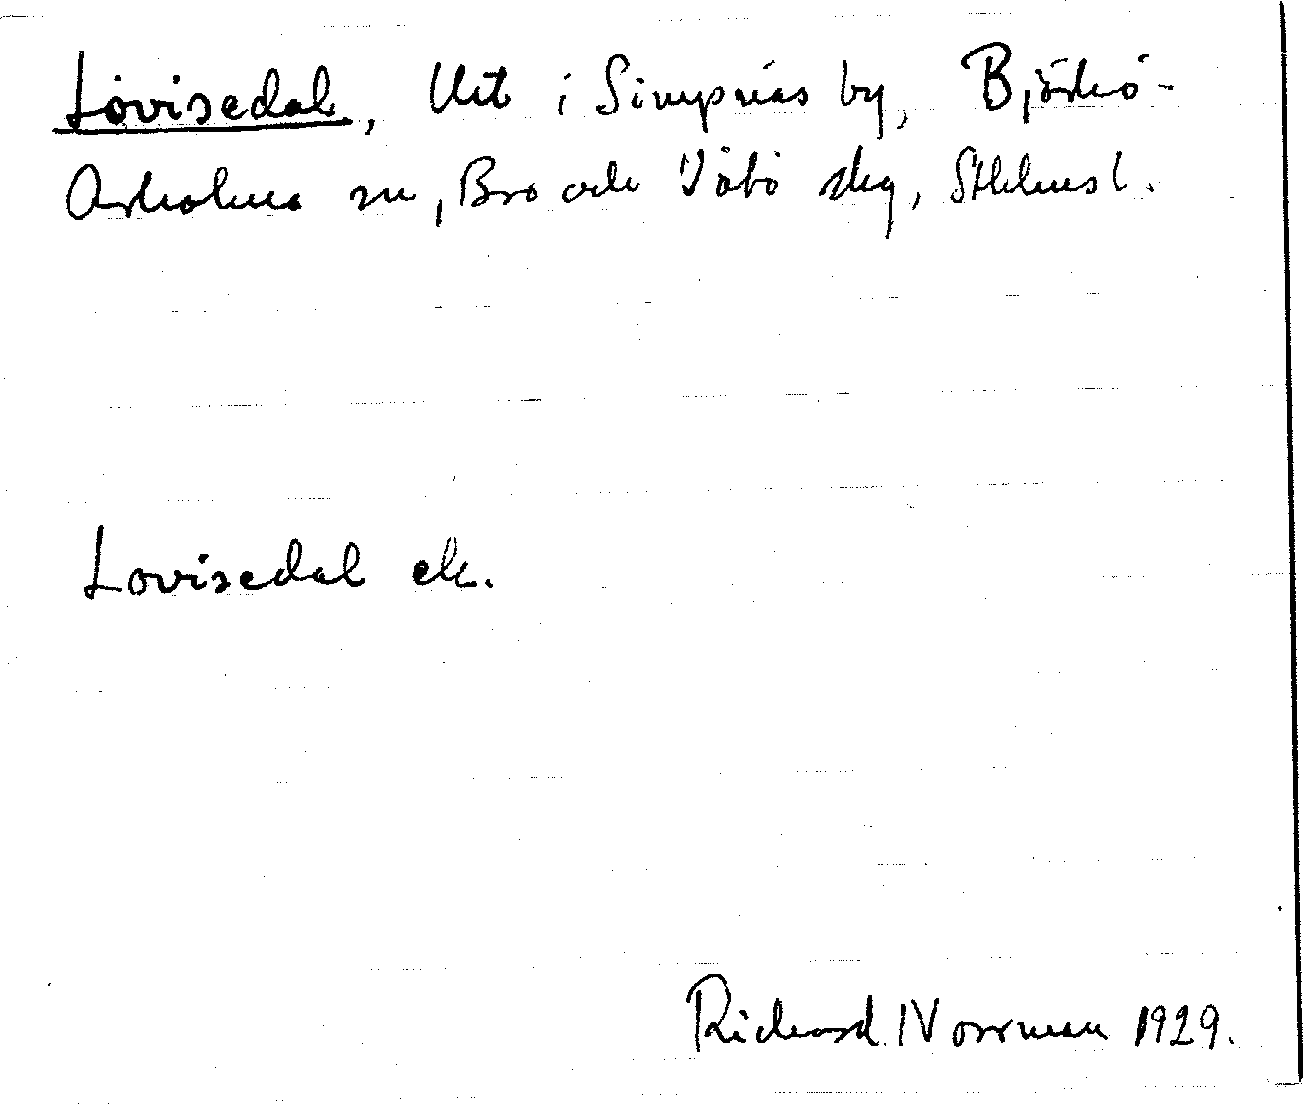 Lovisedal, Utt i Simpnäs by, Björkö-
Arholma sn, Bro och Vätö skg, Sthlmsl.
Lovisedal ek.
Richard Norrman 1929.